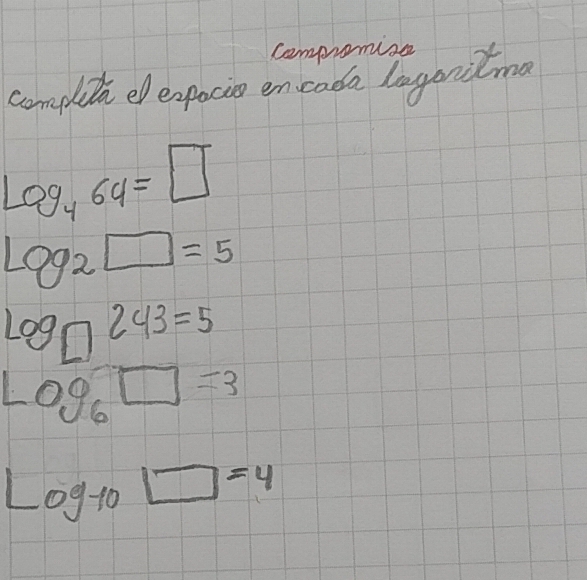 compromiso
completa el espacio en cada logaritmo
Log₄ 64 = □
Log₂ □ = 5
Log□ 243 = 5
Log₆ □ = 3
Log₁₀ □ = 4